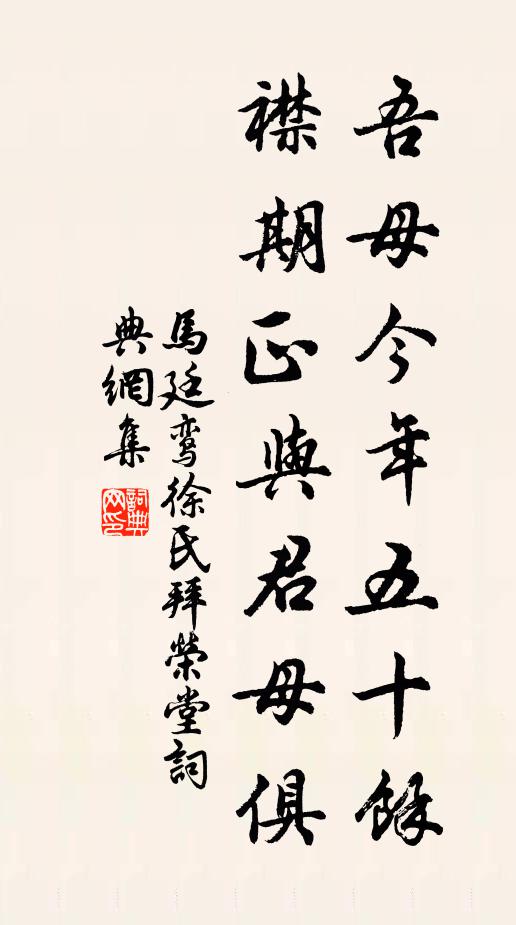 吾母今年五十餘
襟期正與君母俱
馬廷鸞徐氏拜榮堂詞
典網集
詞典網印